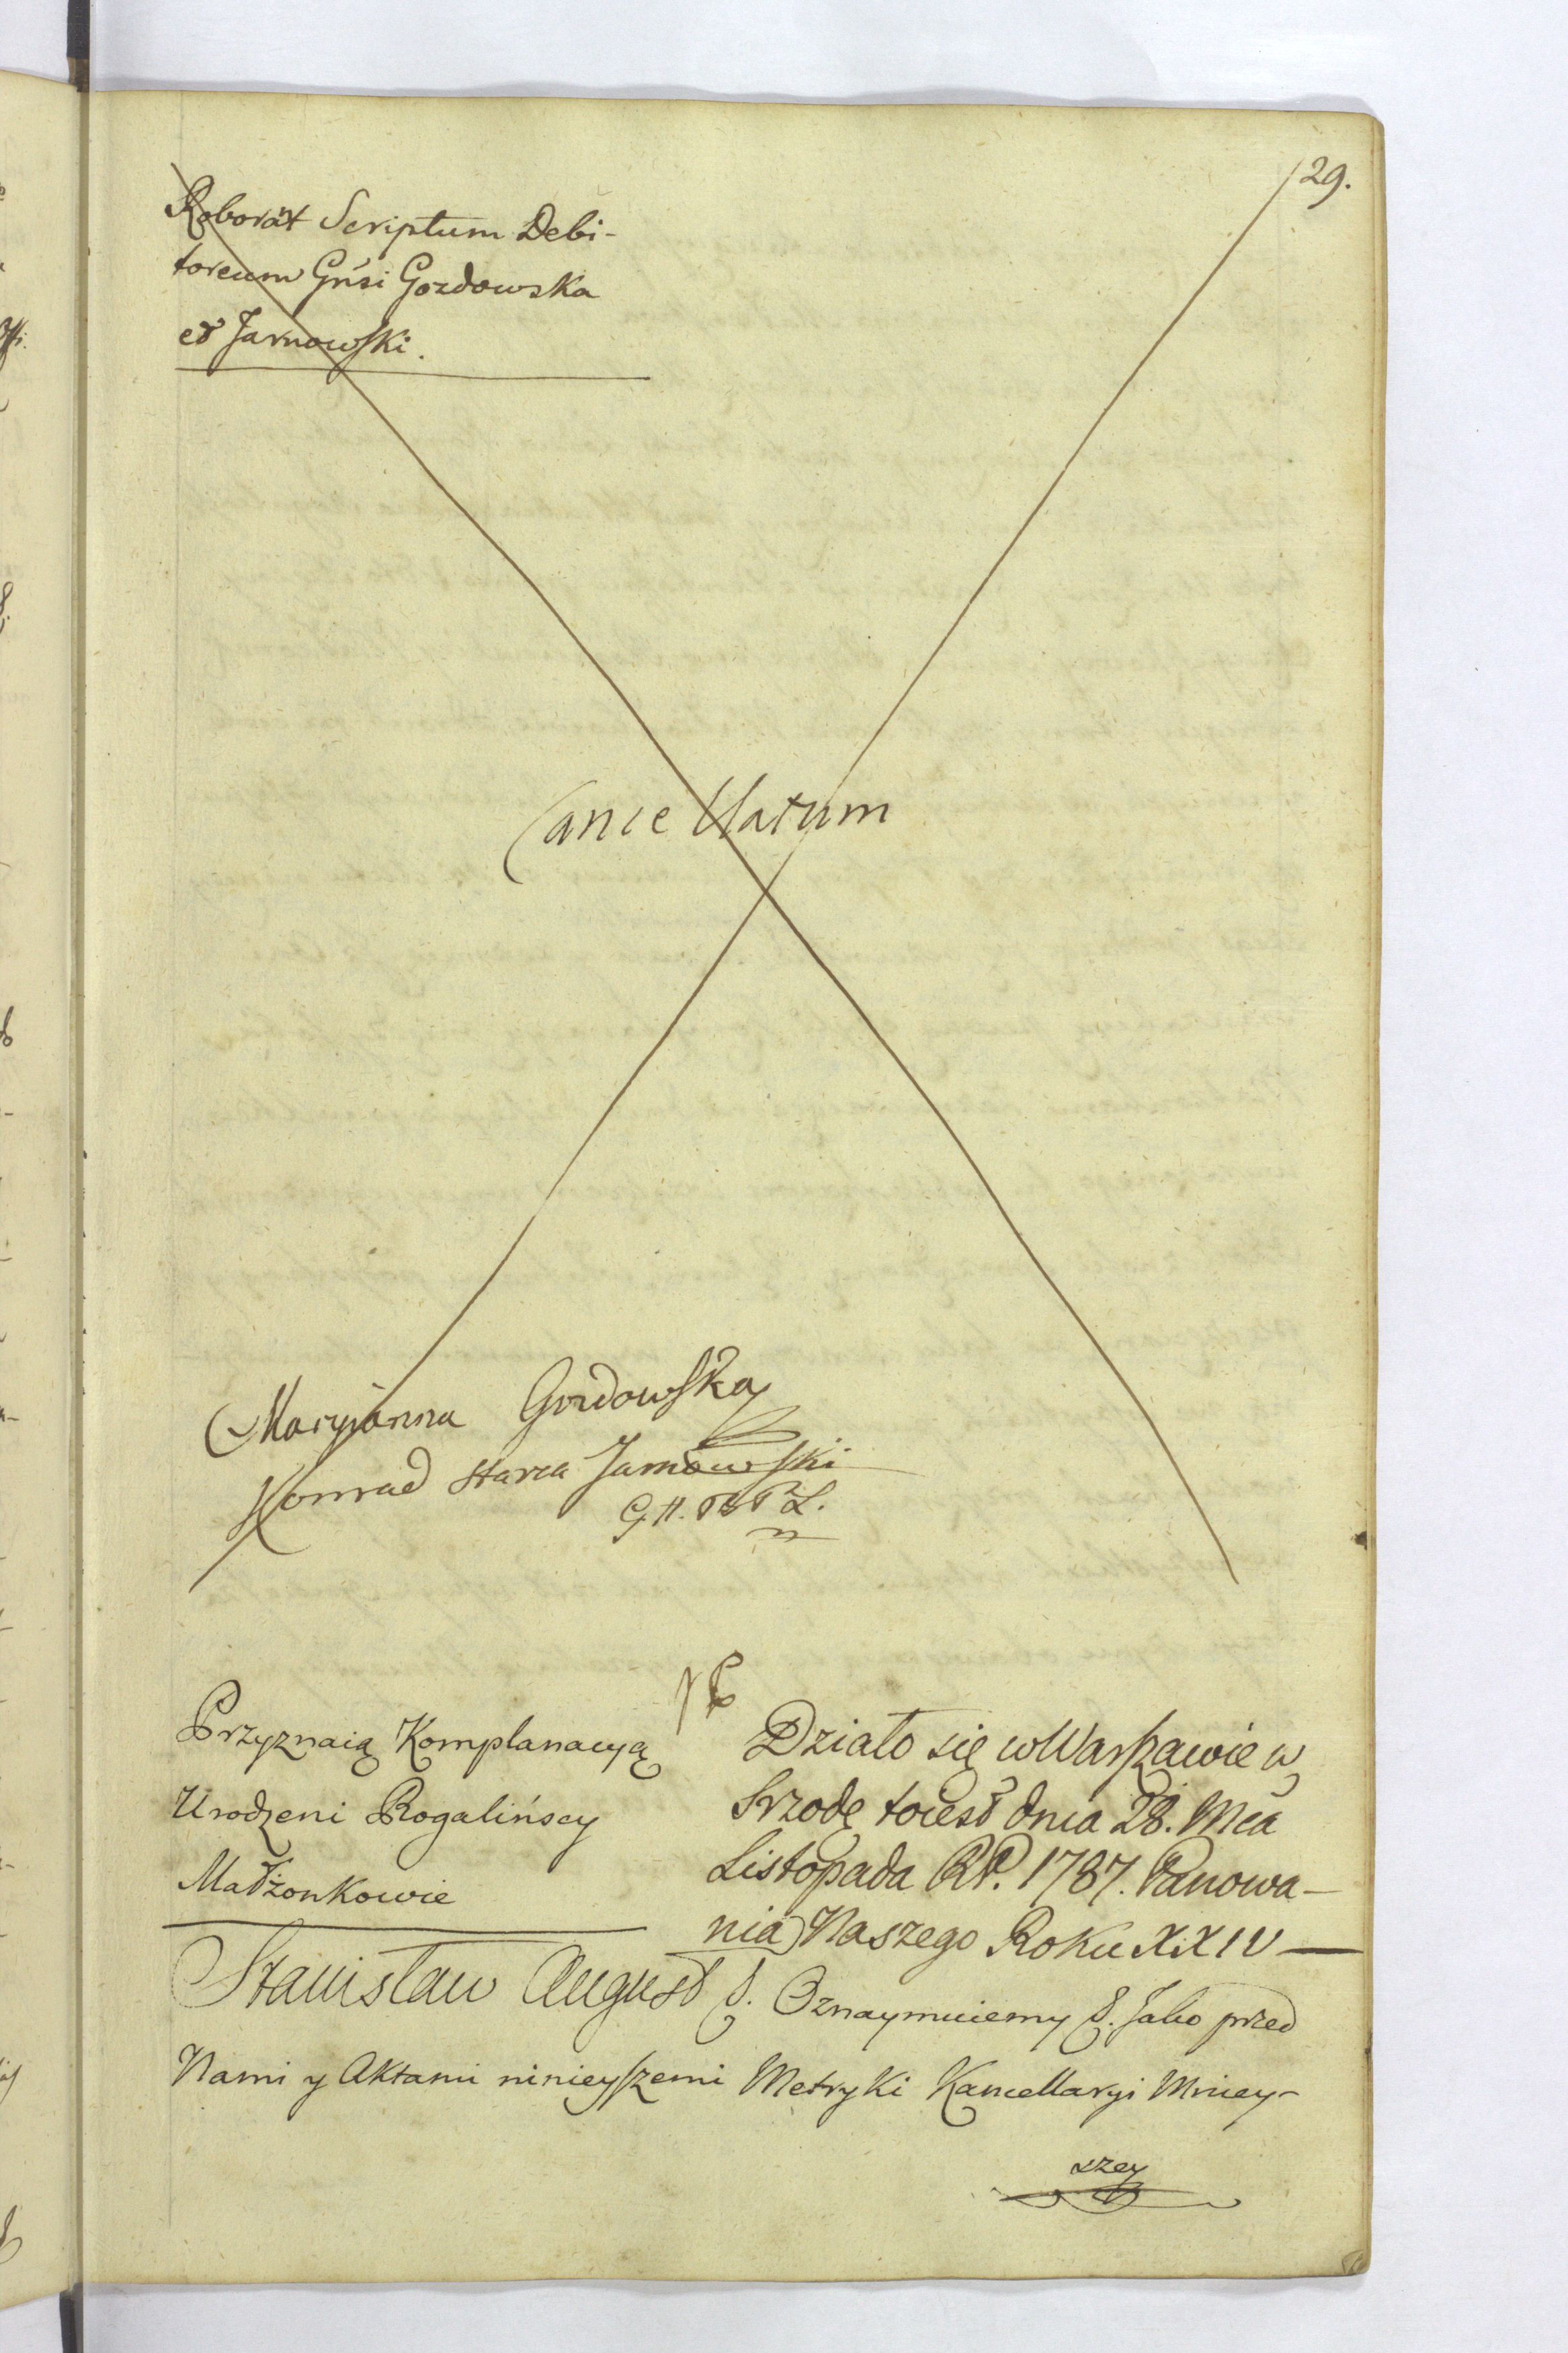 29.
Roborat Scriptum Debi-
toreum Gnsi Gozdowska
et Jarnowski.
Cancellatum
Maryianna Gozdowska
Konrad Jarnowski
Przyznaią Komplanacyą
Urodzeni Rogalińscy
Małżonkowie
Działo się w Warszawie w
Srzodę toiest dnia 28. Mca
Listopada RP. 1787. Panowa-
nia Naszego Roku XXIV
Stanisław August &. Oznaymuiemy &. Jako przed
Nami y Aktami ninieyszemi Metryki Kancellaryi Mniey-
szey